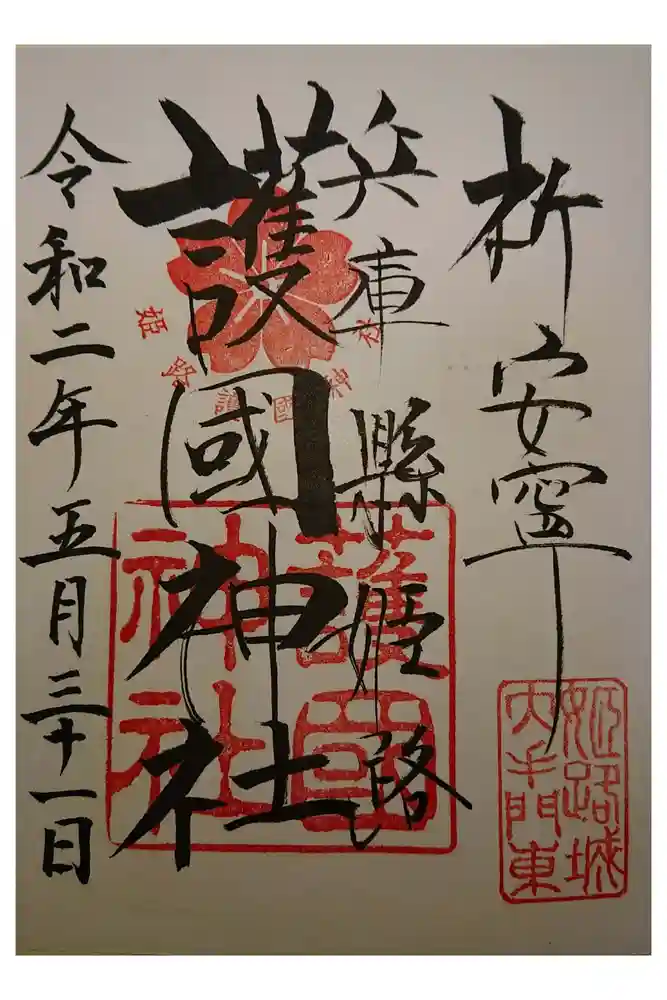 祈安寧
兵庫縣姫路
護國神社
令和二年五月三十一日
姫路護國神社
護國神社
姫路城大手門東